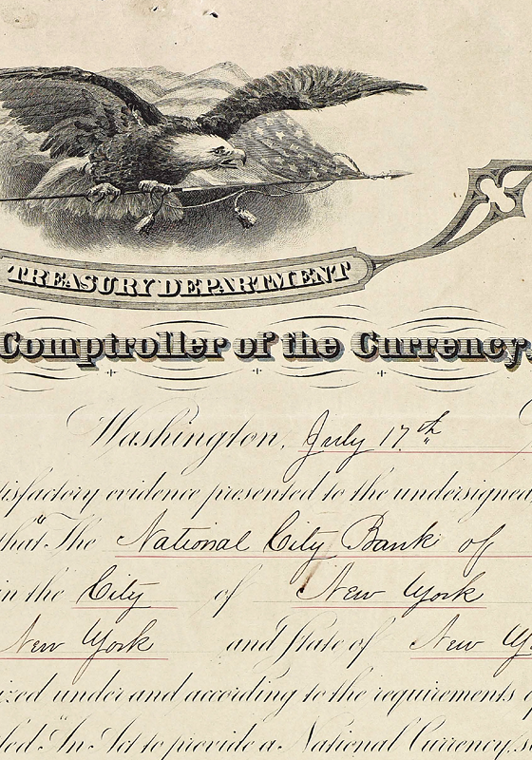 TREASURY DEPARTMENT
Comptroller of the Currency,
Washington, July 17th
isfactory evidence presented to the undersigned
that "The National City Bank of
in the City of New York
New York and State of New Yo
ized under and according to the requirements
led "An Act to provide a National Currency, s